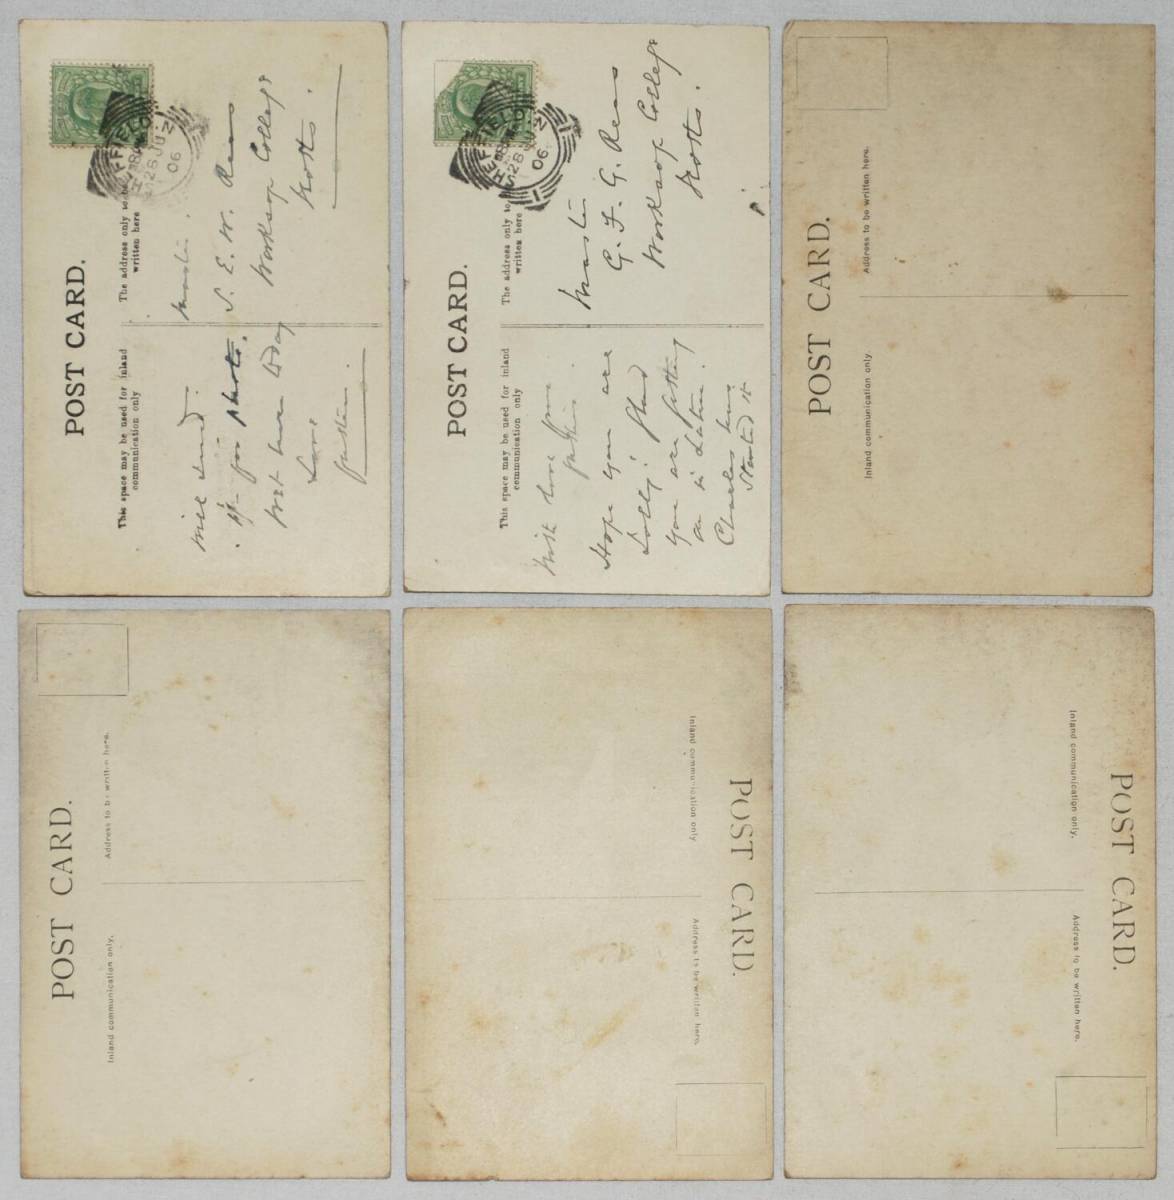 POST CARD.
This space may be used for inland
communication only
The address only to be
written here
SHEFFIELD
28 JU
06
Will send
for photo.
Wet here today
Love
Master
S. E. W. Rees
Worksop College
Notts.
POST CARD.
This space may be used for inland
communication only
The address only to
written here
SHEFFIELD
28 JU
06
With love from
Hope you are
Jolly! Glad
you are getting
on in Latin.
Charles has
started it
Master
G. F. G. Rees
Worksop College
Notts.
POST CARD.
Inland communication only
Address to be written here.
POST CARD.
Inland communication only.
Address to be written here.
POST CARD.
Inland communication only
Address to be written here.
POST CARD.
Inland communication only.
Address to be written here.